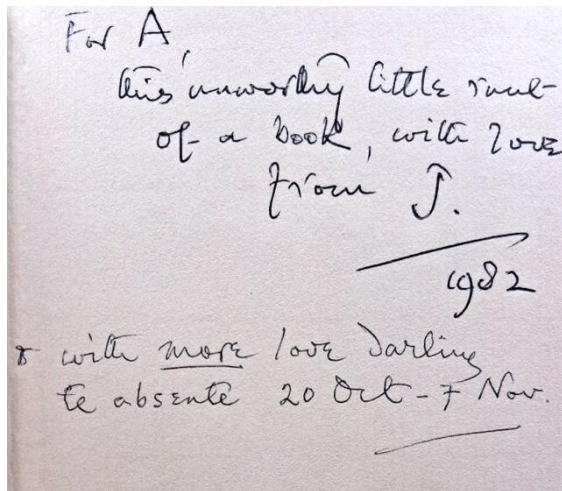 For A,
this unworthy little runt
of a book, with love
from J.
1982
& with more love darling
te absente 20 Oct - 7 Nov.